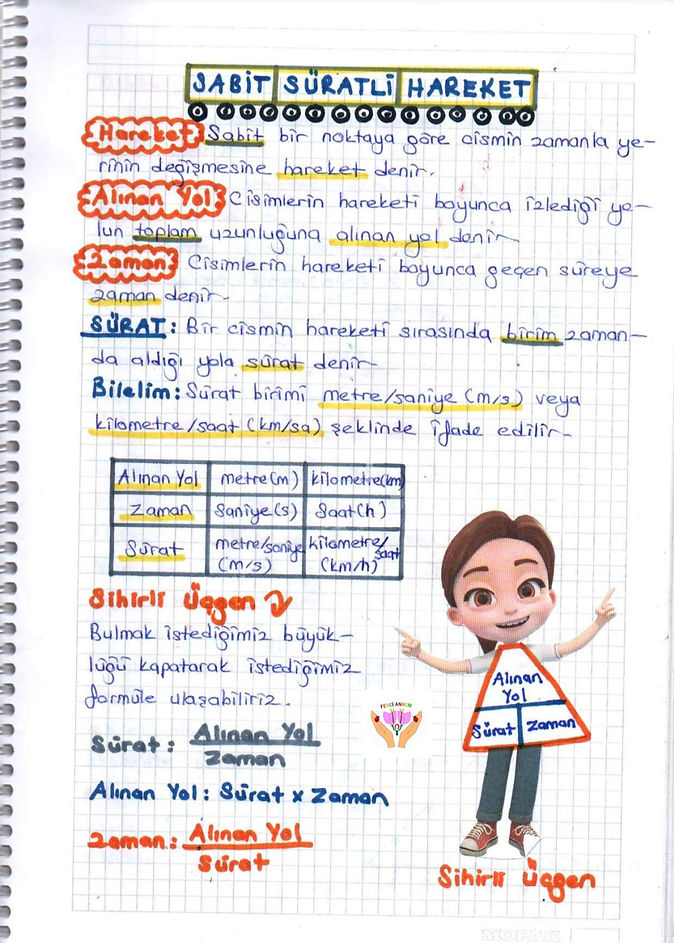 SABİT SÜRATLİ HAREKET
Hareket Sabit bir noktaya göre cismin zamanla ye-
rinin değişmesine hareket denir.
Alınan Yol Cisimlerin hareketi boyunca izlediği yo-
lun toplam uzunluğuna alınan yol denir
Zaman Cisimlerin hareketi boyunca geçen süreye
zaman denir.
SÜRAT: Bir cismin hareketi sırasında birim zaman-
da aldığı yola sürat denir
Bilelim: Sürat birimi metre/saniye (m/s) veya
kilometre/saat (km/sa) şeklinde ifade edilir-
Alınan Yol metre(m) kilometre(km)
Zaman Saniye(s) Saat(h)
Sürat metre/saniye (m/s) kilometre/saat (km/h)
Sihirli Üçgen
Bulmak istediğimiz büyük-
lüğü kapatarak istediğimiz
formüle ulaşabiliriz.
Sürat: Alınan Yol
Zaman
Alınan Yol: Sürat x Zaman
Zaman: Alınan Yol
Sürat
Alınan
Yol
Sürat Zaman
Sihirli Üçgen